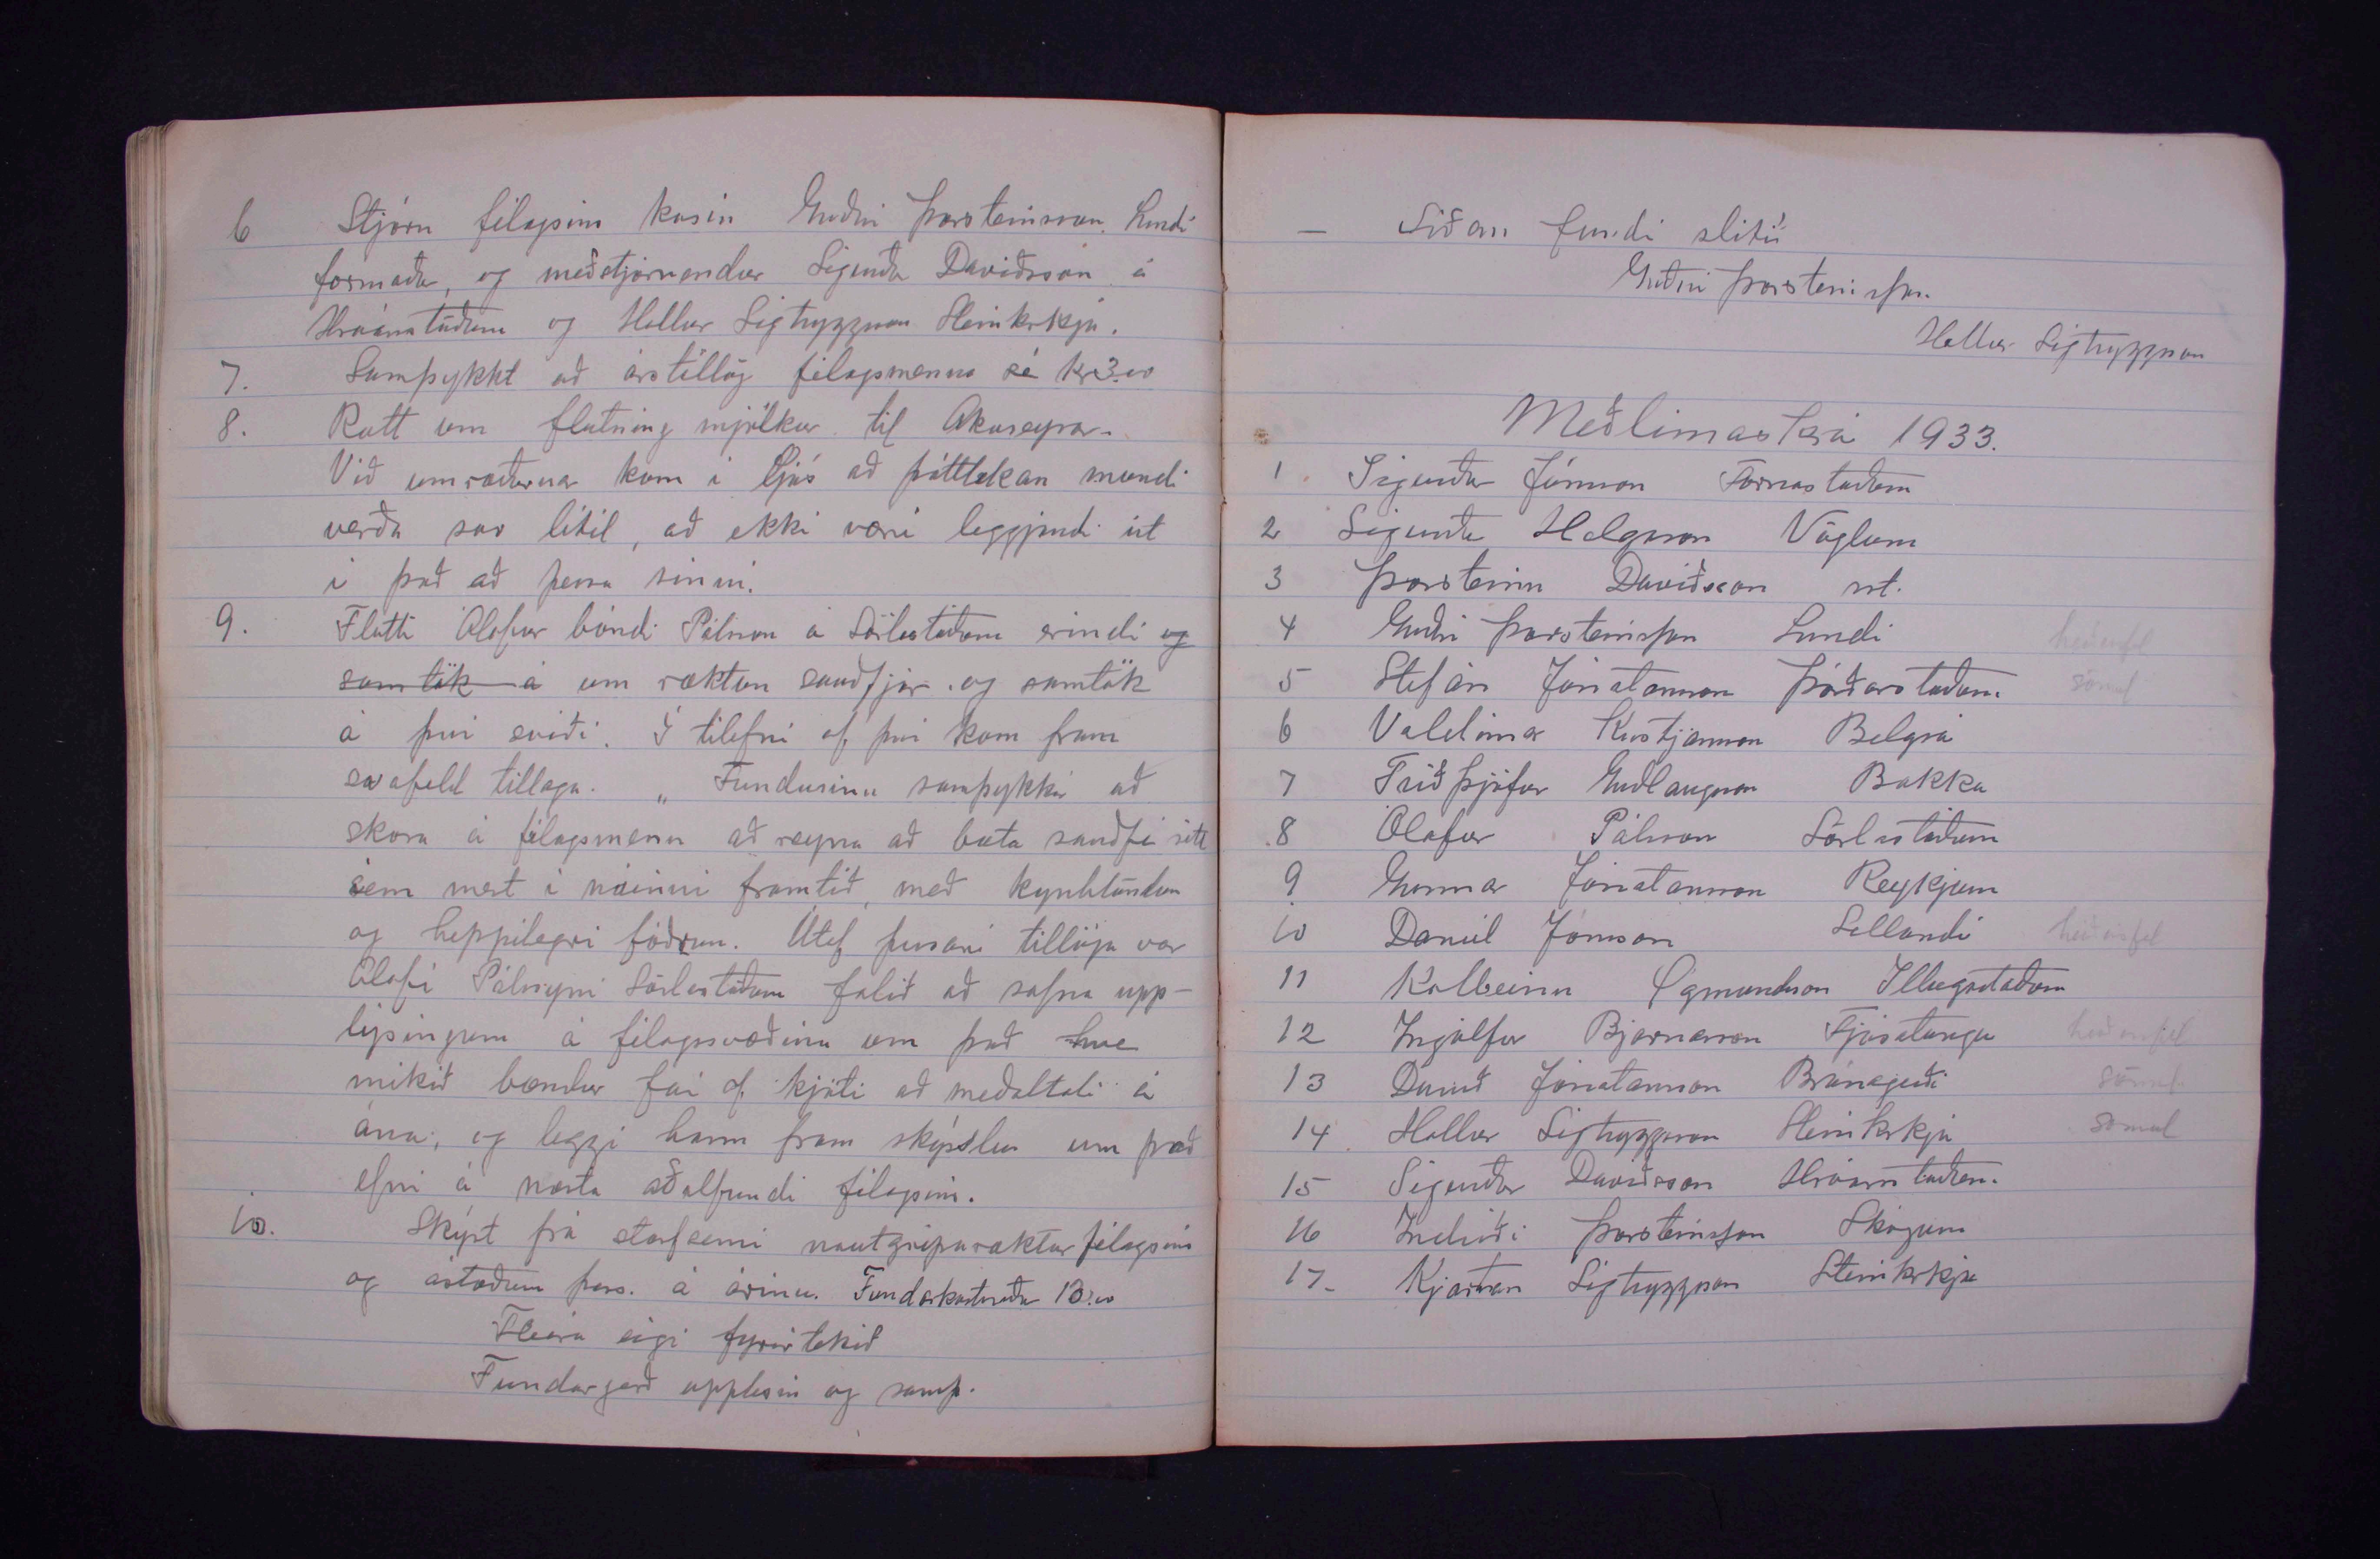 6 Stjórn félagsins kosin Guðni Þorsteinsson. Lundi
formaður, og meðstjórnendur Sigurður Davíðsson á
Hróarsstöðum og Hallur Sigtryggsson Steinkirkju.
7. Samþykkt að árstillög félagsmanna sé kr 3.00
8. Rætt um flutning mjólkur til Akureyrar.
Við umræðurnar kom í ljós að þátttakan mundi
verða svo lítil, að ekki væri leggjandi út
í það að þessu sinni.
9. Flutti Ólafur bóndi Pálsson á Sörlastöðum erindi og
samtök á um ræktun sauðfjár. og samtök
á því sviði. Í tilefni af því kom fram
svofeld tillaga. „Fundurinn samþykkir að
skora á félagsmenn að reyna að bæta sauðfé sitt
sem mest í náinni framtíð, með kynblöndun
og heppilegri fóðrun. Útaf þessari tillögu var
Ólafi Pálssyni Sörlastöðum falið að safna upp-
lýsingum á félagssvæðinu um það hve
mikið bændur fái af kjöti að meðaltali á
ána, og leggi hann fram skýrslu um það
efni á næsta aðalfundi félagsins.
10. Skýrt frá starfsemi nautgriparæktarfélagsins
og ástæðum þess. á árinu. Fundarkostnaður 10.00
Fleira eigi fyrirtekið
Fundargerð upplesin og samþ.
— Síðan fundi slitið
Guðni Þorsteinsson.
Hallur Sigtryggsson
Meðlimaskrá 1933.
1 Sigurður Jónsson Fornastöðum
2 Sigurður Helgason Vöglum
3 Þorsteinn Davíðsson st.
4 Guðni Þorsteinsson Lundi
5 Stefán Jónatansson Þórðarstöðum. sömul
6 Valdimar Kristjánsson Belgsá
7 Friðþjófur Guðlaugsson Bakka
8 Ólafur Pálsson Sörlastöðum
9 Gunnar Jónatansson Reykjum
10 Daníel Jónsson Sellandi
11 Kolbeinn Ögmundsson Illugastöðum
12 Ingólfur Bjarnarson Fjósatungu
13 Davíð Jónatansson Brúnagerði sömul
14 Hallur Sigtryggsson Steinkirkju sömul
15 Sigurður Davíðsson Hróarsstöðum.
16 Indriði Þorsteinsson Skógum
17. Kjartan Sigtryggsson Steinkirkju